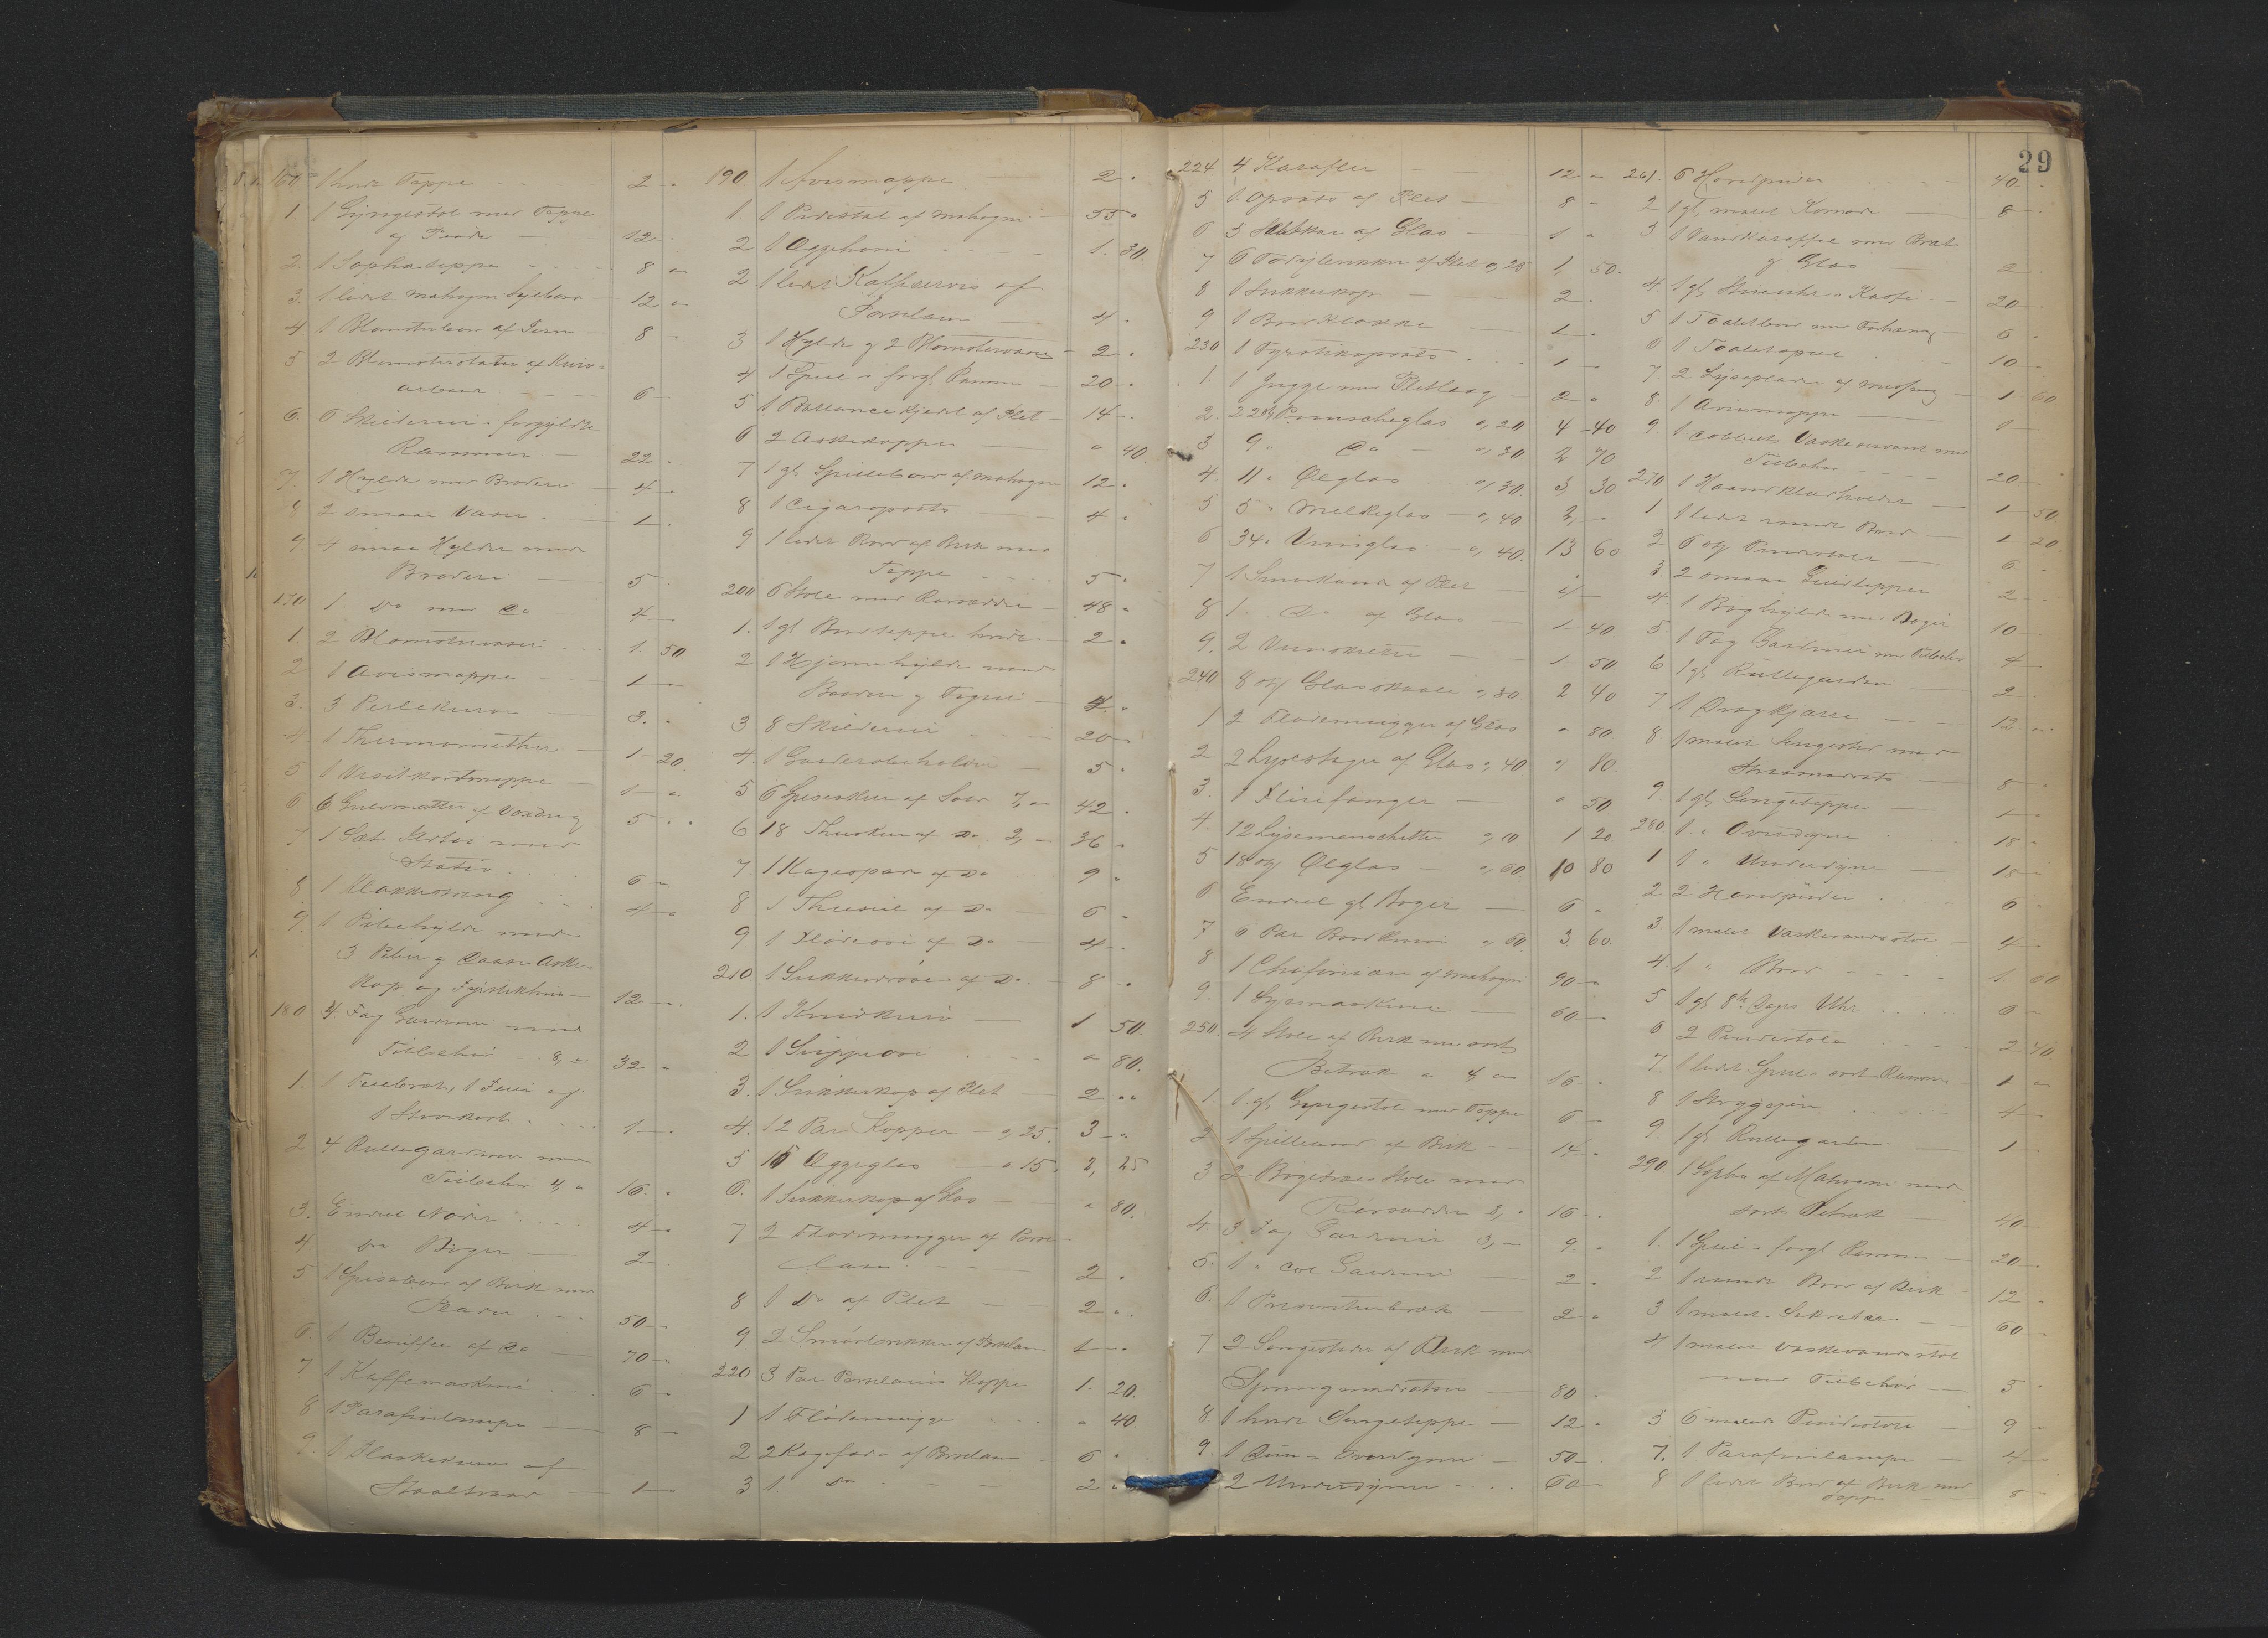 29
160 1 hvidt Teppe 2 "
1. 1 Gyngestol med Teppe
og Pude 12 "
2. 1 Sophateppe 8 "
3. 1 lidet mahogni Sybord 12 "
4. 1 Blomsterbord af Jern 8 "
5 2 Blomsterstativ af Kurv-
arbeid 6 "
6. 6 Skilderier i forgyldte
Rammer 22 "
7. 1 Hylde med Broderi 4 "
8 2 smaa Vaser 1 "
9 4 smaa Hylder med
Broderi 5 "
170 1 Do med Do 4 "
1 2 Blomstervaser 1. 50
2 1 Avismappe 1 "
3. 3 Perlekurve 3. "
4 1 Thermomether 1 20
5 1 Visitkortmappe 1 "
6 6 Gulvmatter af Voxdug 5 "
7 1 Sæt Ildtøi med
Stativ 6 "
8. 1 Klokkestreng 4 "
9. 1 Pibehylde med
3 Piber og Daase Aske-
kop og Fyrstikhus 12 "
180 4 Fag Gardiner med
Tilbehør 8, " 32 "
1. 1 Thebræt, 1 Fuii og
1 Støvekost 1 "
2 4 Rullegardiner med
Tilbehør 4, " 16 "
3. Endel Noder 4 "
4. Do Bøger 2
5 1 Spisebord af Birk med
Plader 50 "
6. 1 Buffet af Do 70 "
7 1 Kaffemaskine 6 "
8 1 Parafinlampe 8 "
9. 1 Flaskekurv af
Staaltraad 1 "
190 1 Avismappe 2 "
1. 1 Pidistal af mahogni 55 "
2 1 Æggehøne 1. 30.
2 1 lidet Kaffeservis af
Porselæn 4 "
3 1 Hylde og 2 Blomstervaser 2 "
4 1 Speil i forgl Ramme 20 "
5 1 Ballancekjedel af Plet 14 "
6 2 Askekopper " 40.
7 1 gl Spillebord af mahogni 12 "
8 1 Cigaropsats 4 "
9 1 lidet Bord af Birk med
Teppe 5 "
200 6 Stole med Rørsæder 48 "
1. 1 gl Bordteppe hvidt 2 "
2 1 Hjørnehylde med
Broderi og Figur 4 "
3 8 Skilderier 20 "
4. 1 Garderobeholder 5 "
5 6 Spiseskeer af Sølv 7, " 42 "
6 18 Theskeer af Do 2, " 36 "
7. 1 Kagespade af Do 9 "
8 1 Thesie af Do 6 "
9. 1 Flødeøse af Do 4 "
210 1 Sukkerskee af Do 8 "
1. 1 Knivkurv 1 50.
2 1 Suppeøse " 80.
3. 1 Sukkerkop af Plet 2 "
4. 12 Par Kopper " 25. 3 "
5 15 Æggeglas " 15. 2, 25
6. 1 Sukkerkop af Glas " 80.
7 2 Flødemugger af Porse-
læn 2 "
8 1 Do af Plet 2 "
9 2 Smørbrikker af Porselæn 1 "
220 3 Par Porselæns Kopper 1. 20.
1 1 Flødemugge " 40.
2 2 Kagefade af Porselæn 6 "
3 1 Do 2 "
224 4 Karafler 12 "
5 1 Opsats af Plet 8 "
6 3 Saltkar af Glas 1 "
7 6 af Plet " 25 1, 50.
8 1 Sukkerkop 2.
9 1 Bordklokke 1 "
230 1 Fyrstikopsats 1 "
1. 1 Jugge med Pletlaag 2 "
2. 22 Punscheglas " 20 4 40
3 9 " Do " 30 2 70
4 11 " Ølglas " 30 3, 30
5 5 " Melkeglas " 40 2, "
6 34 " Vinglas " 40. 13 60
7 1 Smørkande af Plet 4 "
8 1 Do af Glas 1 40.
9. 2 1 50
240 8 Glasskaale " 30 2 40
1 2 Flødemugger af Glas " 80
2 2 Lysestager af Glas " 40 " 80.
3. 1 Fluefanger " 50
4. 12 Lysemanschetter " 10 1 20
5 18 Ølglas " 60 10 80
6 Endel gl Bøger 6 "
7 6 Par Bordknive " 60. 3 60.
8 1 Chifoniere af mahogni 90 "
9. 1 Symaskine 60 "
250. 4 Stole af Birk med sort
Betræk a 4, " 16 "
1. 1 gl Gyngestol med Teppe 6 "
2 1 Spillebord af Birk 14 "
3 2 Bøgetræes Stole med
Rørsæder 8, " 16 "
4. 3 Fag Gardiner 3, " 9. "
5. 1 " Gardiner 2 "
6. 1 Presenterbræt 2 "
7 2 Sengesteder af Birk med
Springmadratser 80 "
8. 1 hvidt Sengeteppe 12 "
9. 1 Dun- Overdyne 50 "
2 Underdyner 60 "
261. 6 Hovedpuder 40 "
2 1 gl, malet Komode 8 "
3 1 Vandkaraffel med Bræt
og Glas 2 "
4. 1 gl Stueuhr i Kasse 20 "
5 1 Toiletbord med Forhæng 6 "
6 1 Toiletspeil 10 "
7. 2 Lyseplader af Messing 1 60
8. 1 Avismappe 1 "
9. 1 dobbelt Vaskeservant med
Tilbehør 20 "
270 1 Haandklædholder 1 50
1 1 lidet rundt Bord 1 20.
2 6 Pindestole 6 "
3. 2 smaa Gulvtepper 2 "
4. 1 Boghylde med Bøger 10 "
5. 1 Fag Gardiner med Tilbehør 4 "
6 1 gl Rullegardin 2 "
7 1 Dragkjærre 12 "
8. 1 malet Sengested med
Straamadrats 8 "
9. 1 gl, Sengeteppe 1 "
280 1 " Overdyne 18 "
1 1 " Underdyne 15 "
2 2 Hovedpuder 6 "
3. 1 malet Vaskevandsstol 4 "
4. 1 " Bord 1. 60
5 1 gl 8te Dages Uhr 6 "
6 2 Pindestole 2 40
7. 1 lidet Speil i sort Ramme 1 "
8 1 Strygejern 4 "
9. 1 gl Rullegardin 1 "
290 1 Sopha af Mahogni med
sort Betræk 40 "
1. 1 Speil i forgl Ramme 20 "
2 1 rundt Bord af Birk 12 "
3 1 malet Sekretær 60 "
4 1 malet vaskevandsstol
med Tilbehør 5 "
5 6 malede Pindestole 9 "
7. 1 Parafinlampe 4 "
8 1 lidet Bord af Birk med
Teppe 8 "